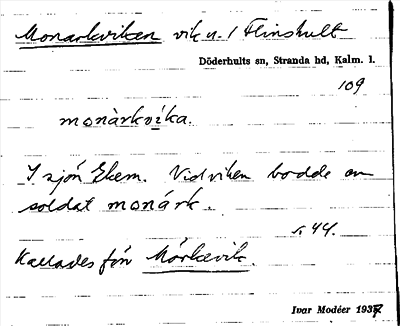 Monarkviken vik u. / Flinshult
Döderhults sn, Stranda hd, Kalm. l.
109
monàrkvika.
I sjön Ekem. Vid viken bodde en
soldat monárk.
s. 44.
Kallades förr Mörkevik.
Ivar Modéer 1937